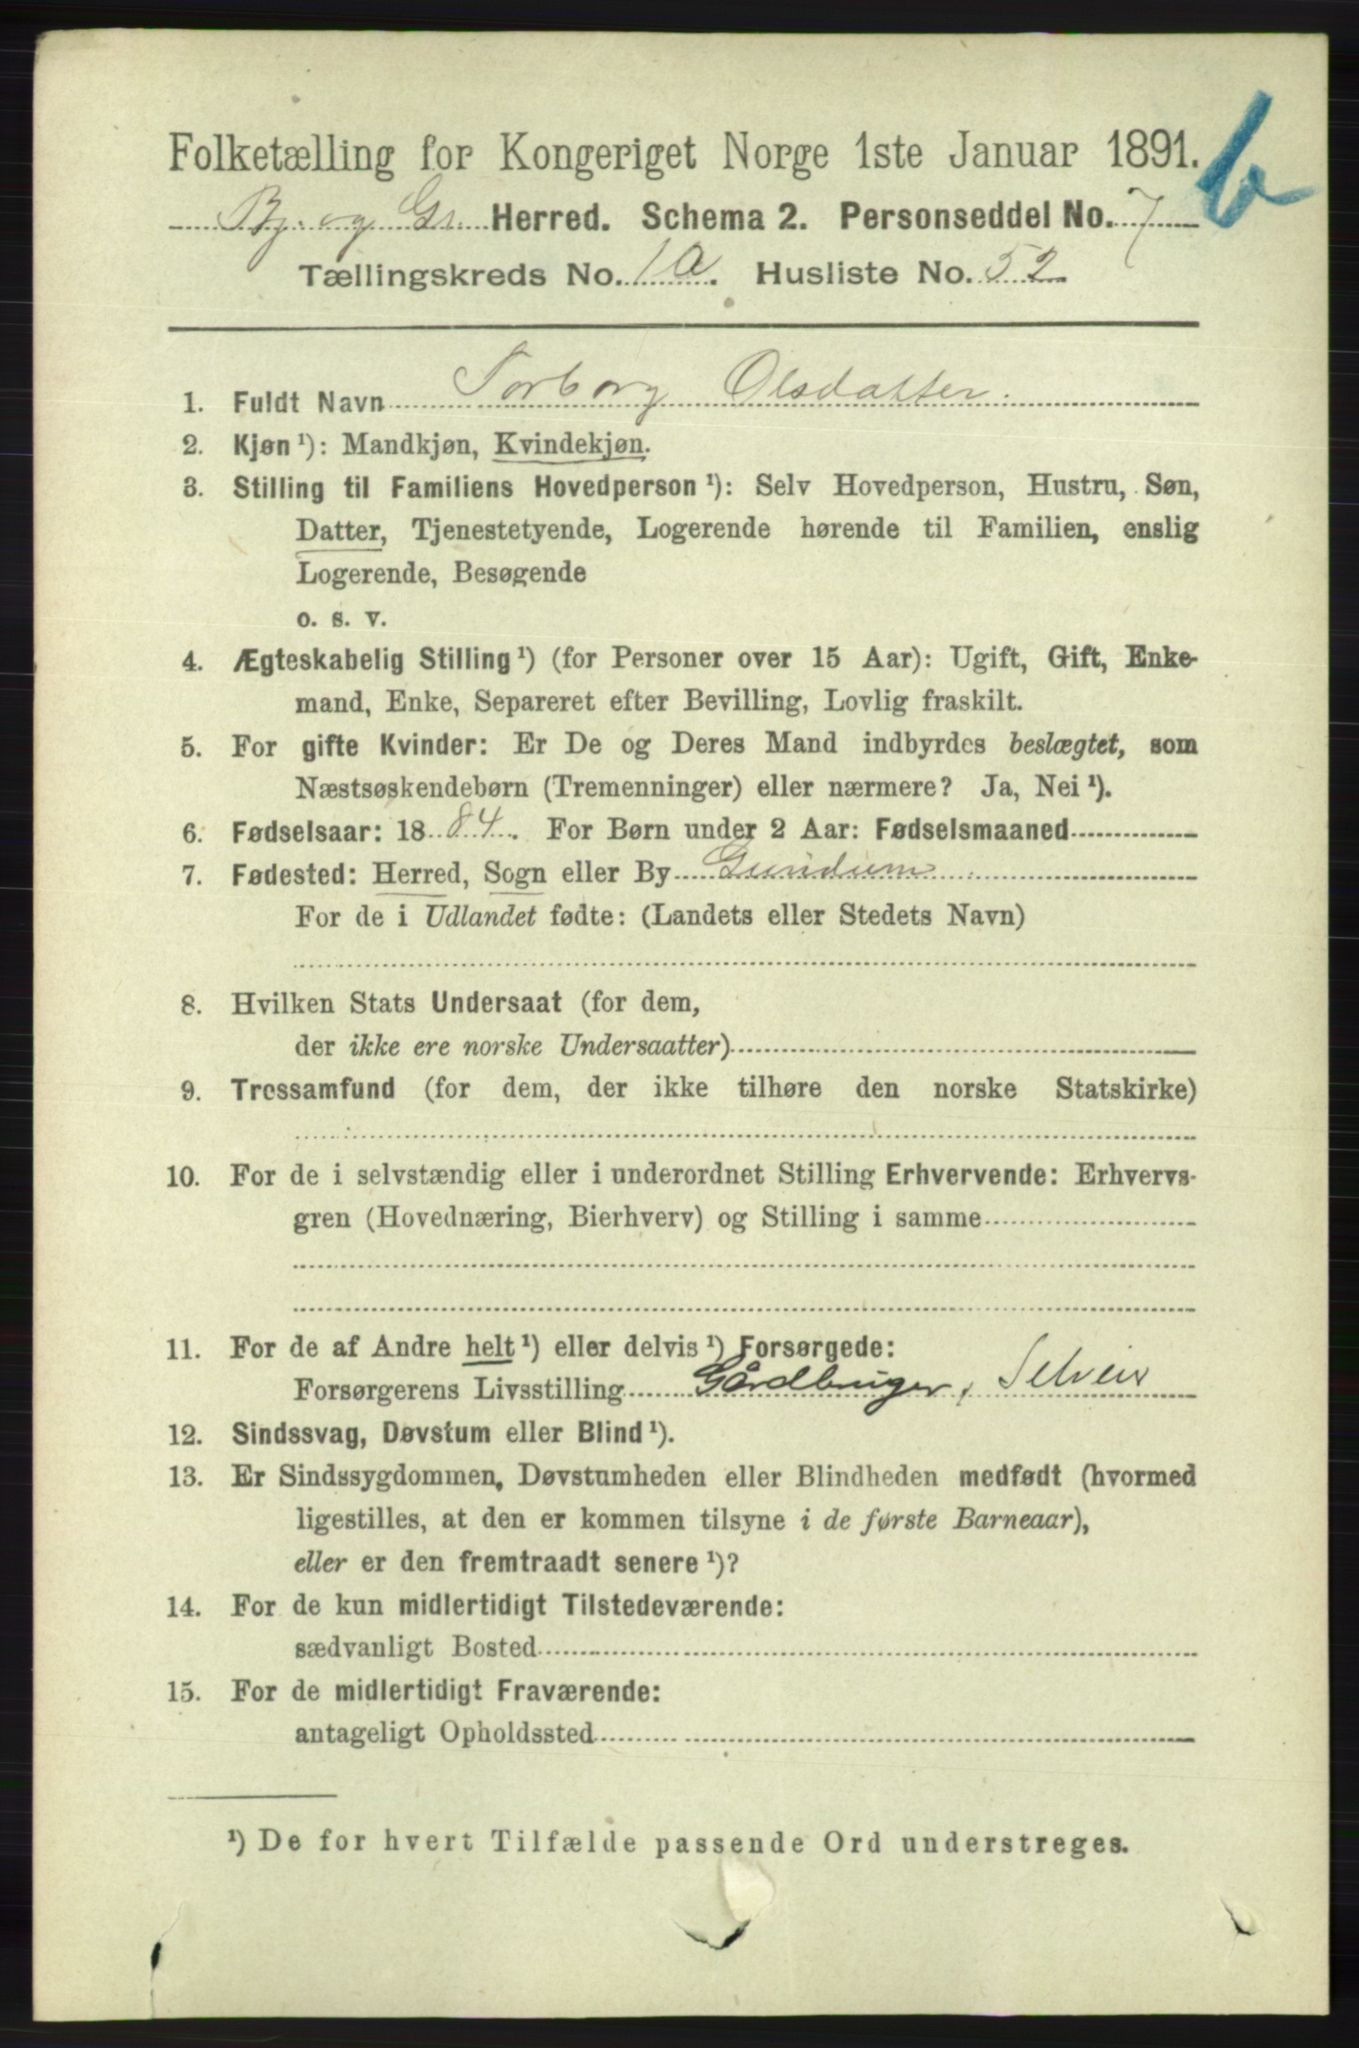 Folketælling for Kongeriget Norge 1ste Januar 1891.
b
Bj. og Gr. Herred. Schema 2. Personseddel No. 7
Tællingskreds No. 1a. Husliste No. 52
1. Fuldt Navn Torborg Olsdatter.
2. Kjøn ¹): Mandkjøn, Kvindekjøn.
3. Stilling til Familiens Hovedperson ¹): Selv Hovedperson, Hustru, Søn,
Datter, Tjenestetyende, Logerende hørende til Familien, enslig
Logerende, Besøgende
o. s. v.
4. Ægteskabelig Stilling ¹) (for Personer over 15 Aar): Ugift, Gift, Enke-
mand, Enke, Separeret efter Bevilling, Lovlig fraskilt.
5. For gifte Kvinder: Er De og Deres Mand indbyrdes beslægtet, som
Næstsøskendebørn (Tremenninger) eller nærmere? Ja, Nei ¹).
6. Fødselsaar: 1884. For Børn under 2 Aar: Fødselsmaaned
7. Fødested: Herred, Sogn eller By
For de i Udlandet fødte: (Landets eller Stedets Navn)
8. Hvilken Stats Undersaat (for dem,
der ikke ere norske Undersaatter)
9. Trossamfund (for dem, der ikke tilhøre den norske Statskirke)
10. For de i selvstændig eller i underordnet Stilling Erhvervende: Erhvervs-
gren (Hovednæring, Bierhverv) og Stilling i samme
11. For de af Andre helt ¹) eller delvis ¹) Forsørgede:
Forsørgerens Livsstilling Gårdbruger, Selveier
12. Sindssvag, Døvstum eller Blind ¹).
13. Er Sindssygdommen, Døvstumheden eller Blindheden medfødt (hvormed
ligestilles, at den er kommen tilsyne i de første Barneaar),
eller er den fremtraadt senere ¹)?
14. For de kun midlertidigt Tilstedeværende:
sædvanligt Bosted
15. For de midlertidigt Fraværende:
antageligt Opholdssted
¹) De for hvert Tilfælde passende Ord understreges.